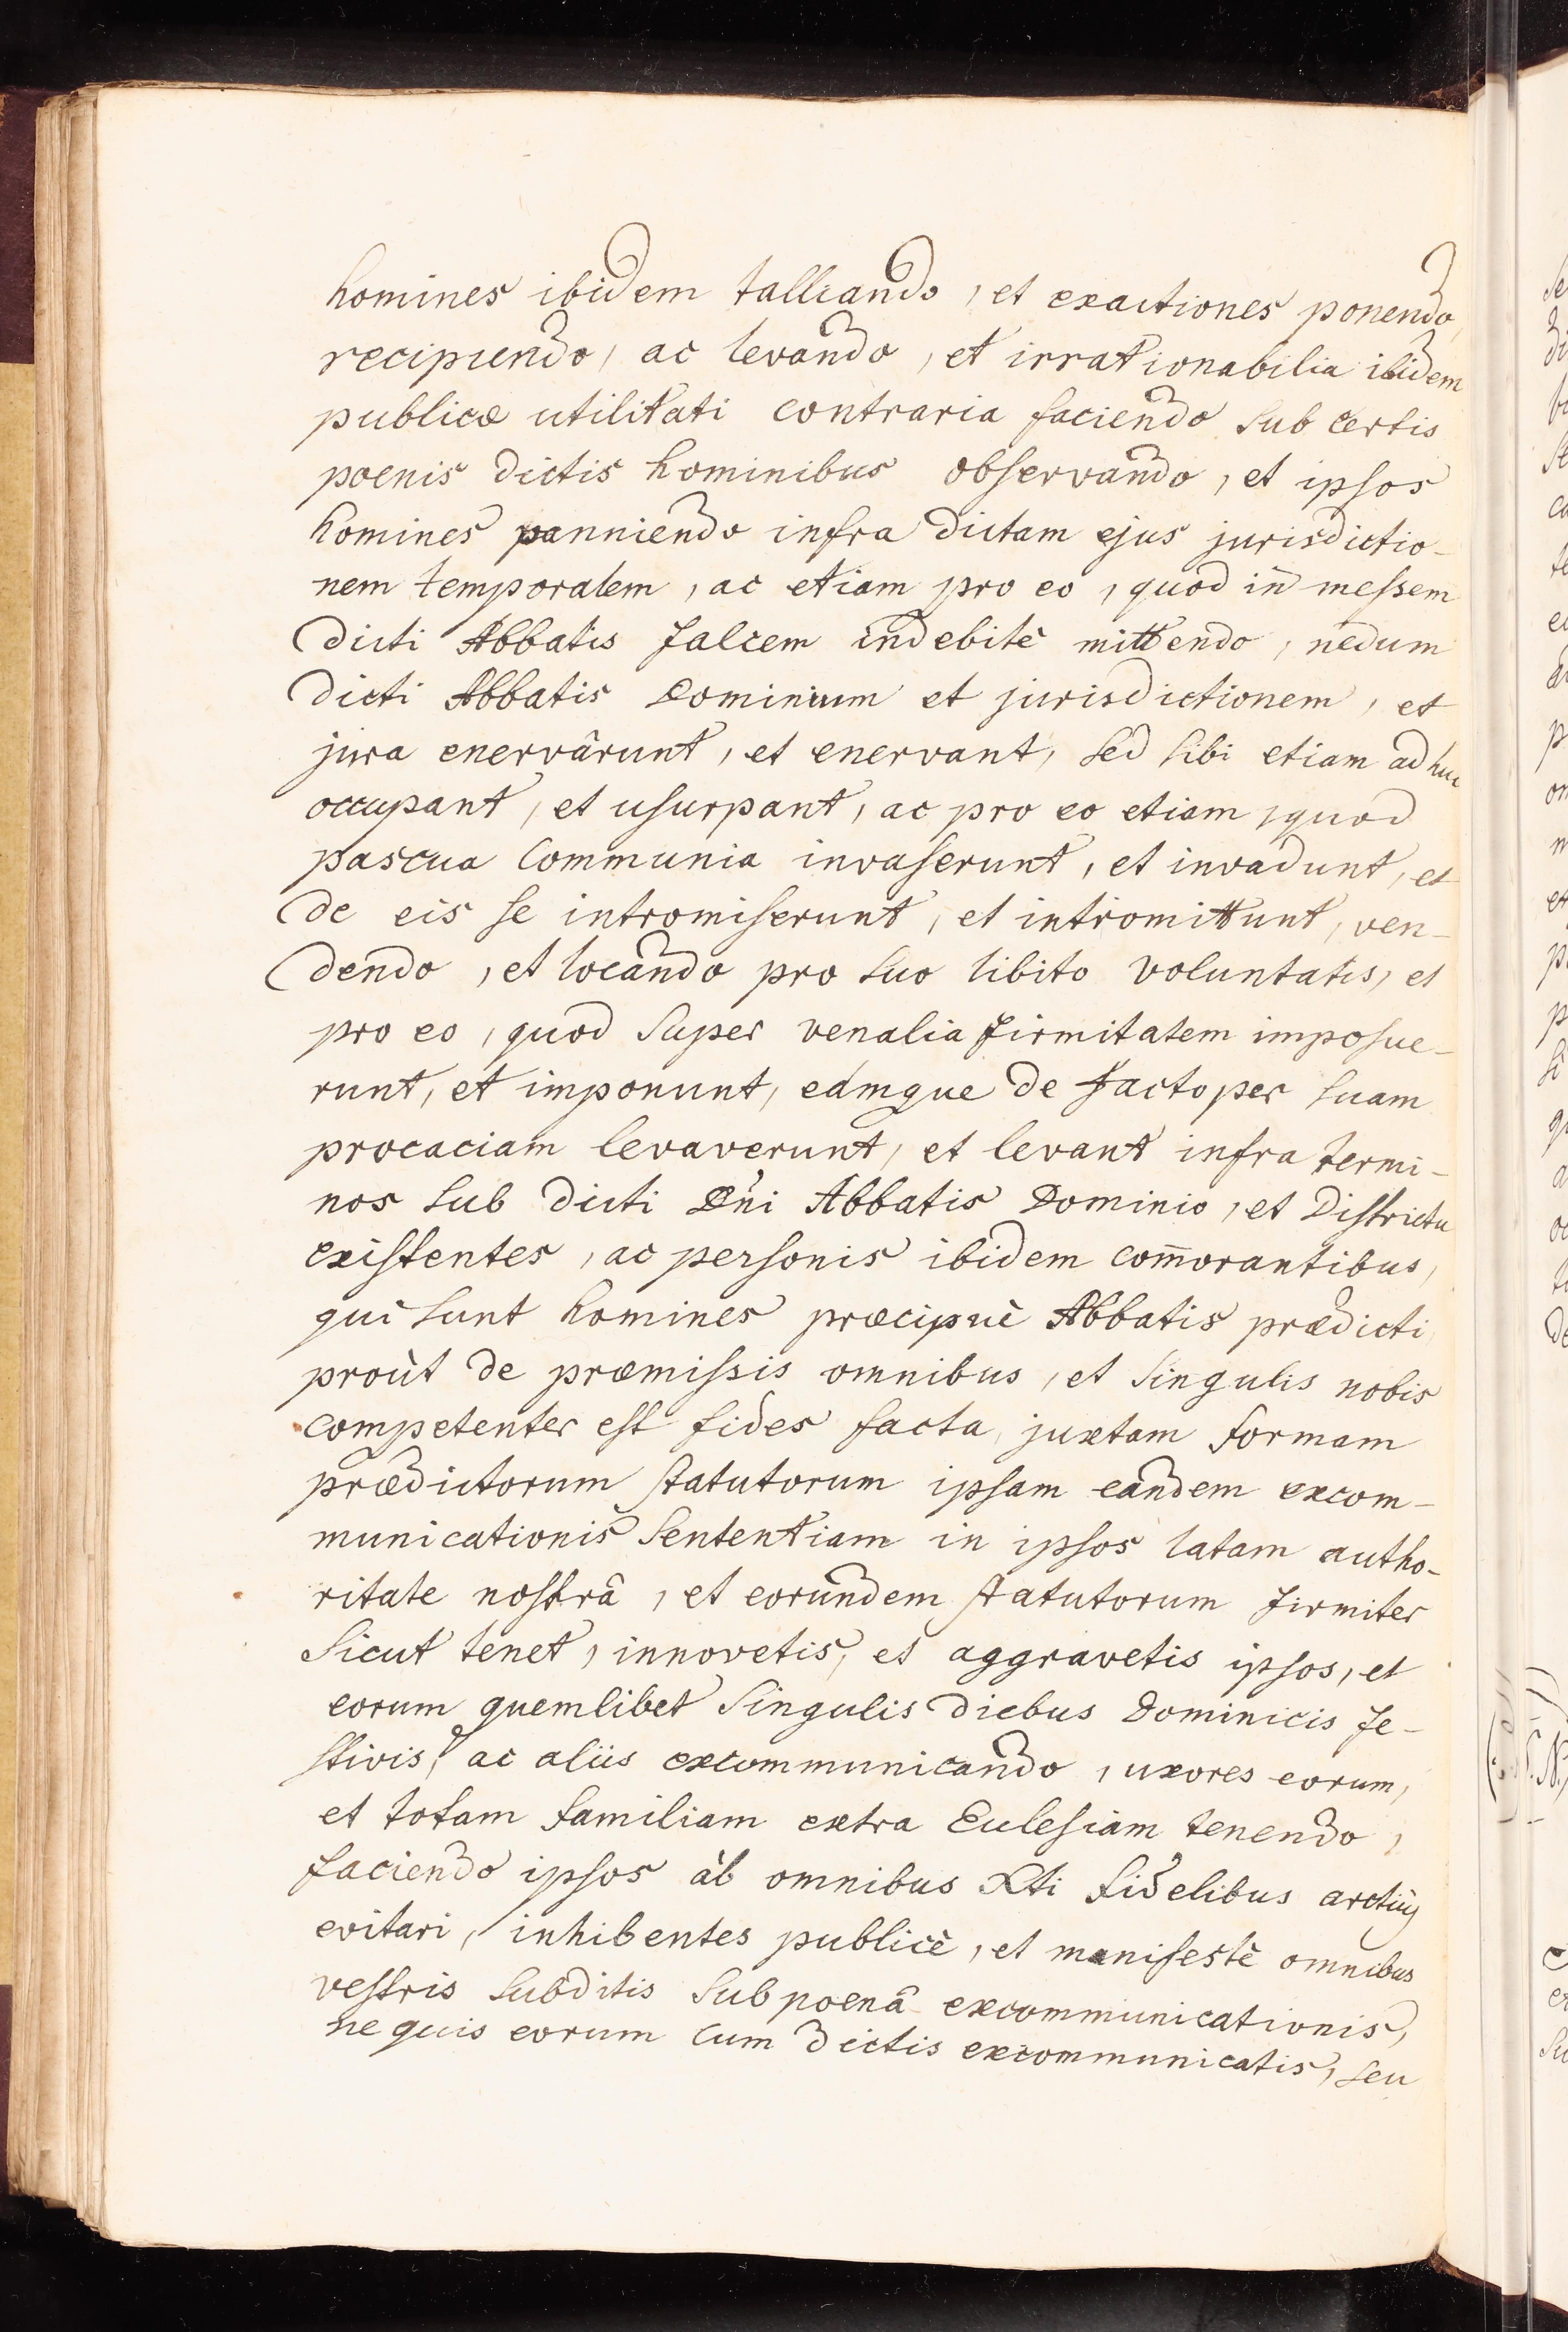 homines ibidem talliando, et exactiones ponendo,
recipiendo, ac levando, et irrationabilia ibidem
publicæ utilitati contraria faciendo sub certis
poenis dictis hominibus observando, et ipsos
homines panniendo infra dictam ejus jurisdictio-
nem temporalem, ac etiam pro eo, quod in messem
dicti Abbatis falcem indebitè mittendo, nedum
dicti Abbatis Dominium et jurisdictionem, et
jura enervârunt, et enervant, sed sibi etiam adhuc
occupant, et usurpant, ac pro eo etiam, quod
pascua Communia invaserunt, et invadunt, et
de eis se intromiserunt, et intromittunt, ven-
dendo, et locando pro suo libito voluntatis, et
pro eo, quod super venalia firmitatem imposue-
runt, et imponunt, eámque de facto per suam
procaciam levaverunt, et levant infra termi-
nos sub dicti Dñi Abbatis Dominio, et Districtu
existentes, ac personis ibidem com̄orantibus,
qui sunt homines præcipuè Abbatis prædicti,
proùt de præmissis omnibus, et singulis nobis
competenter est fides facta, juxtam formam
prædictorum statutorum ipsam eandem excom-
municationis Sententiam in ipsos latam autho-
ritate nostrâ, et eorundem statutorum firmiter
Sicut tenet, innovetis, et aggravetis ipsos, et
eorum quemlibet Singulis diebus Dominicis fe-
stivis, ac aliis excommunicando, uxores eorum,
et totam familiam extra Ecclesiam tenendo,
faciendo ipsos àb omnibus Xti fidelibus arctiùs
evitari, inhibentes publicè, et manifestè omnibus
vestris subditis sub poenâ excommunicationis,
ne quis eorum cum dictis excommunicatis, seu